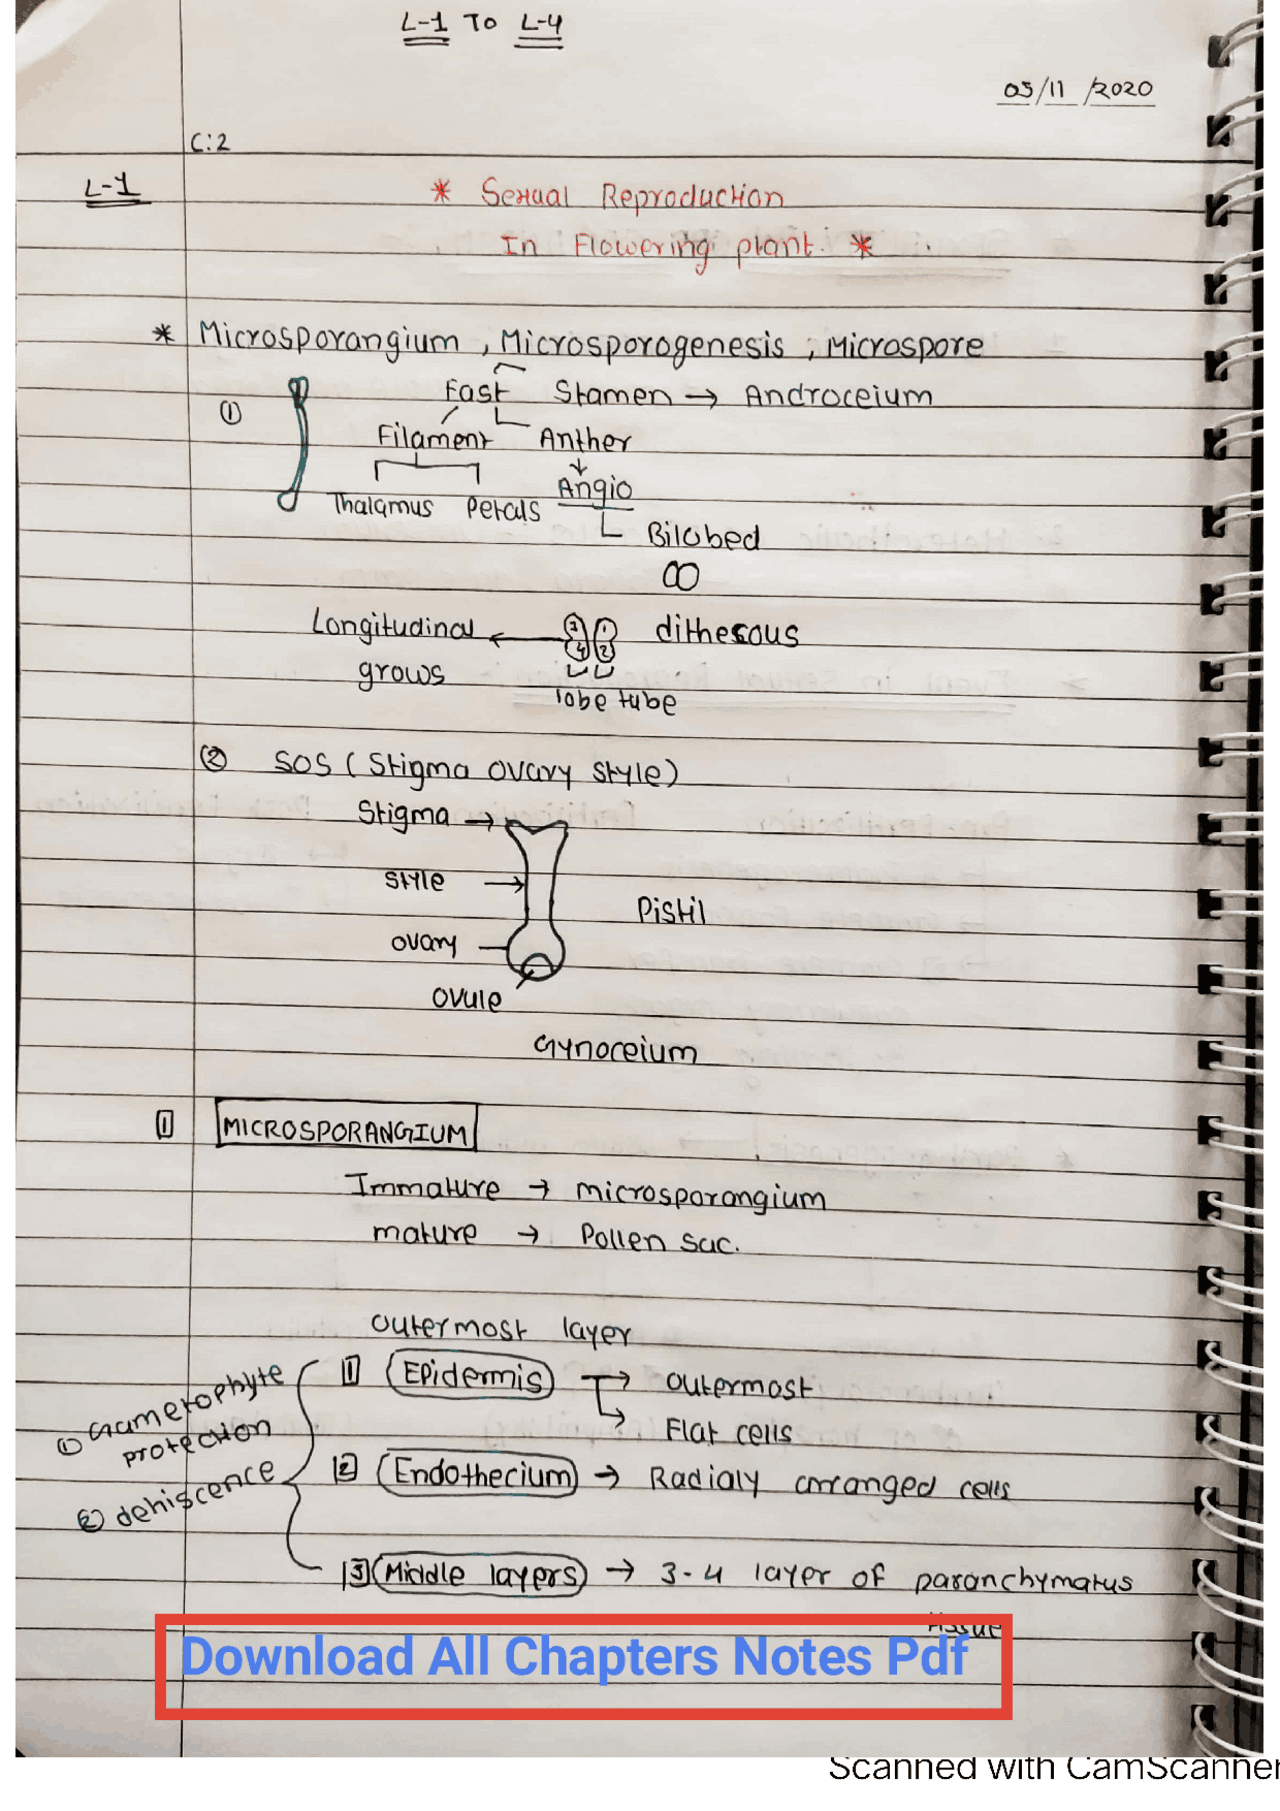 L-1 TO L-4
05/11/2020
C:2
L-1
* Sexual Reproduction
In Flowering plant. *
* Microsporangium, Microsporogenesis, Microspore
① Fast Stamen → Androceium
Filament Anther
Thalamus Petals Angio
Bilobed
Longitudinal ← 3 1 4 2 dithesous
grows
lobe tube
② SOS (Stigma ovary style)
Stigma →
style →
Pistil
ovary
ovule
Gynoceium
1 MICROSPORANGIUM
Immature → microsporangium
mature → Pollen sac.
outermost layer
1 Epidermis → outermost
→ Flat cells
① Gametophyte
protection
2 Endothecium → Radialy arranged cells
② dehiscence
3 Middle layers → 3-4 layer of paranchymatus
tissue
Download All Chapters Notes Pdf
Scanned with CamScanner